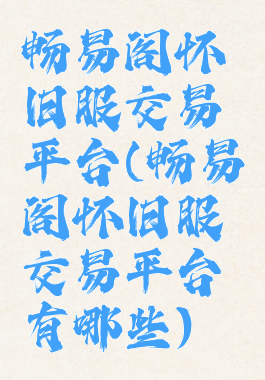 畅易阁怀
旧服交易
平台(畅易
阁怀旧服
交易平台
有哪些)